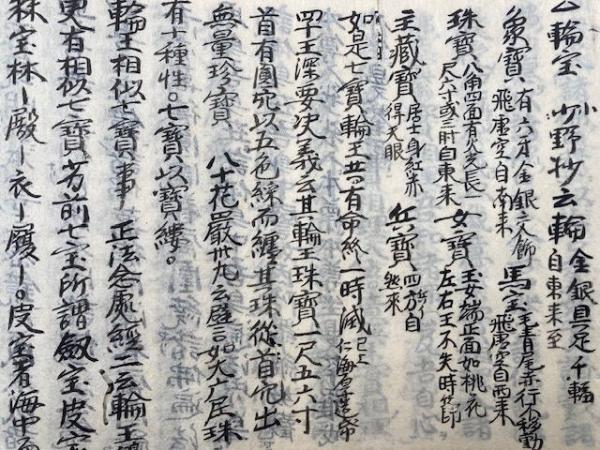 輪宝 小野抄云輪金銀具足千輻
自東来至
象寳有六牙金銀交飾
飛虚空自南来
馬宝毛青尾赤行不移動
飛虚空自西来
珠寳八角四面有火光長一
尺六十或三肘自東来
女寳玉女端正面如桃花
左右王不失時節
主藏寳居士身紅赤
得天眼
兵寳四
自然来
如是七寳輪王共有命終一時滅已上
仁海
王深要決義云其輪王珠寳一尺五六寸
首有圓穴以五色綵而纏其珠從首穴出
無量珍寳 八十花嚴卅九云譬言如大广尼珠
有十種性。七寳以寳縷。
輪王相似七寳事 正法念處經二法輪王
更有相似七寳劣前七宝所謂劔宝皮宝
林宝林ー殿ー衣ー履ー。皮宝者海中